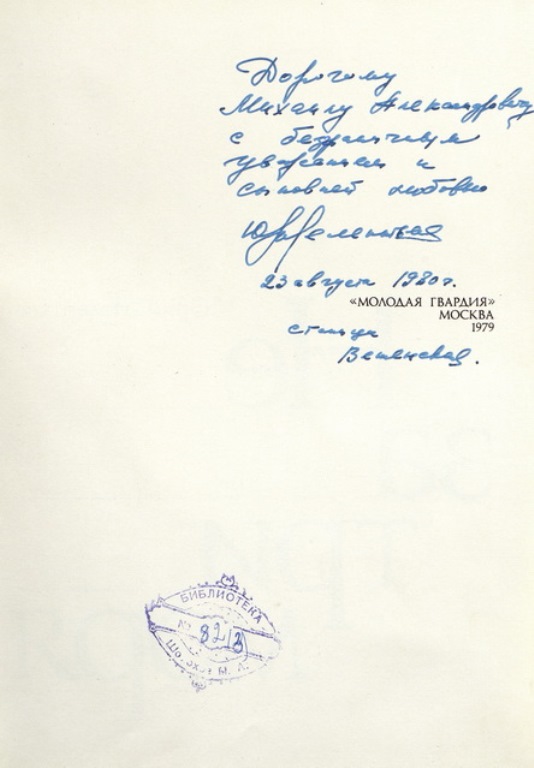 Дорогому
Михаилу Александровичу
с безграничным
уважением и
сыновней любовью
23 августа 1980 г.
«МОЛОДАЯ ГВАРДИЯ»
МОСКВА
1979
станица
Вешенская.
БИБЛИОТЕКА
№ 8213
Шолохов М. А.